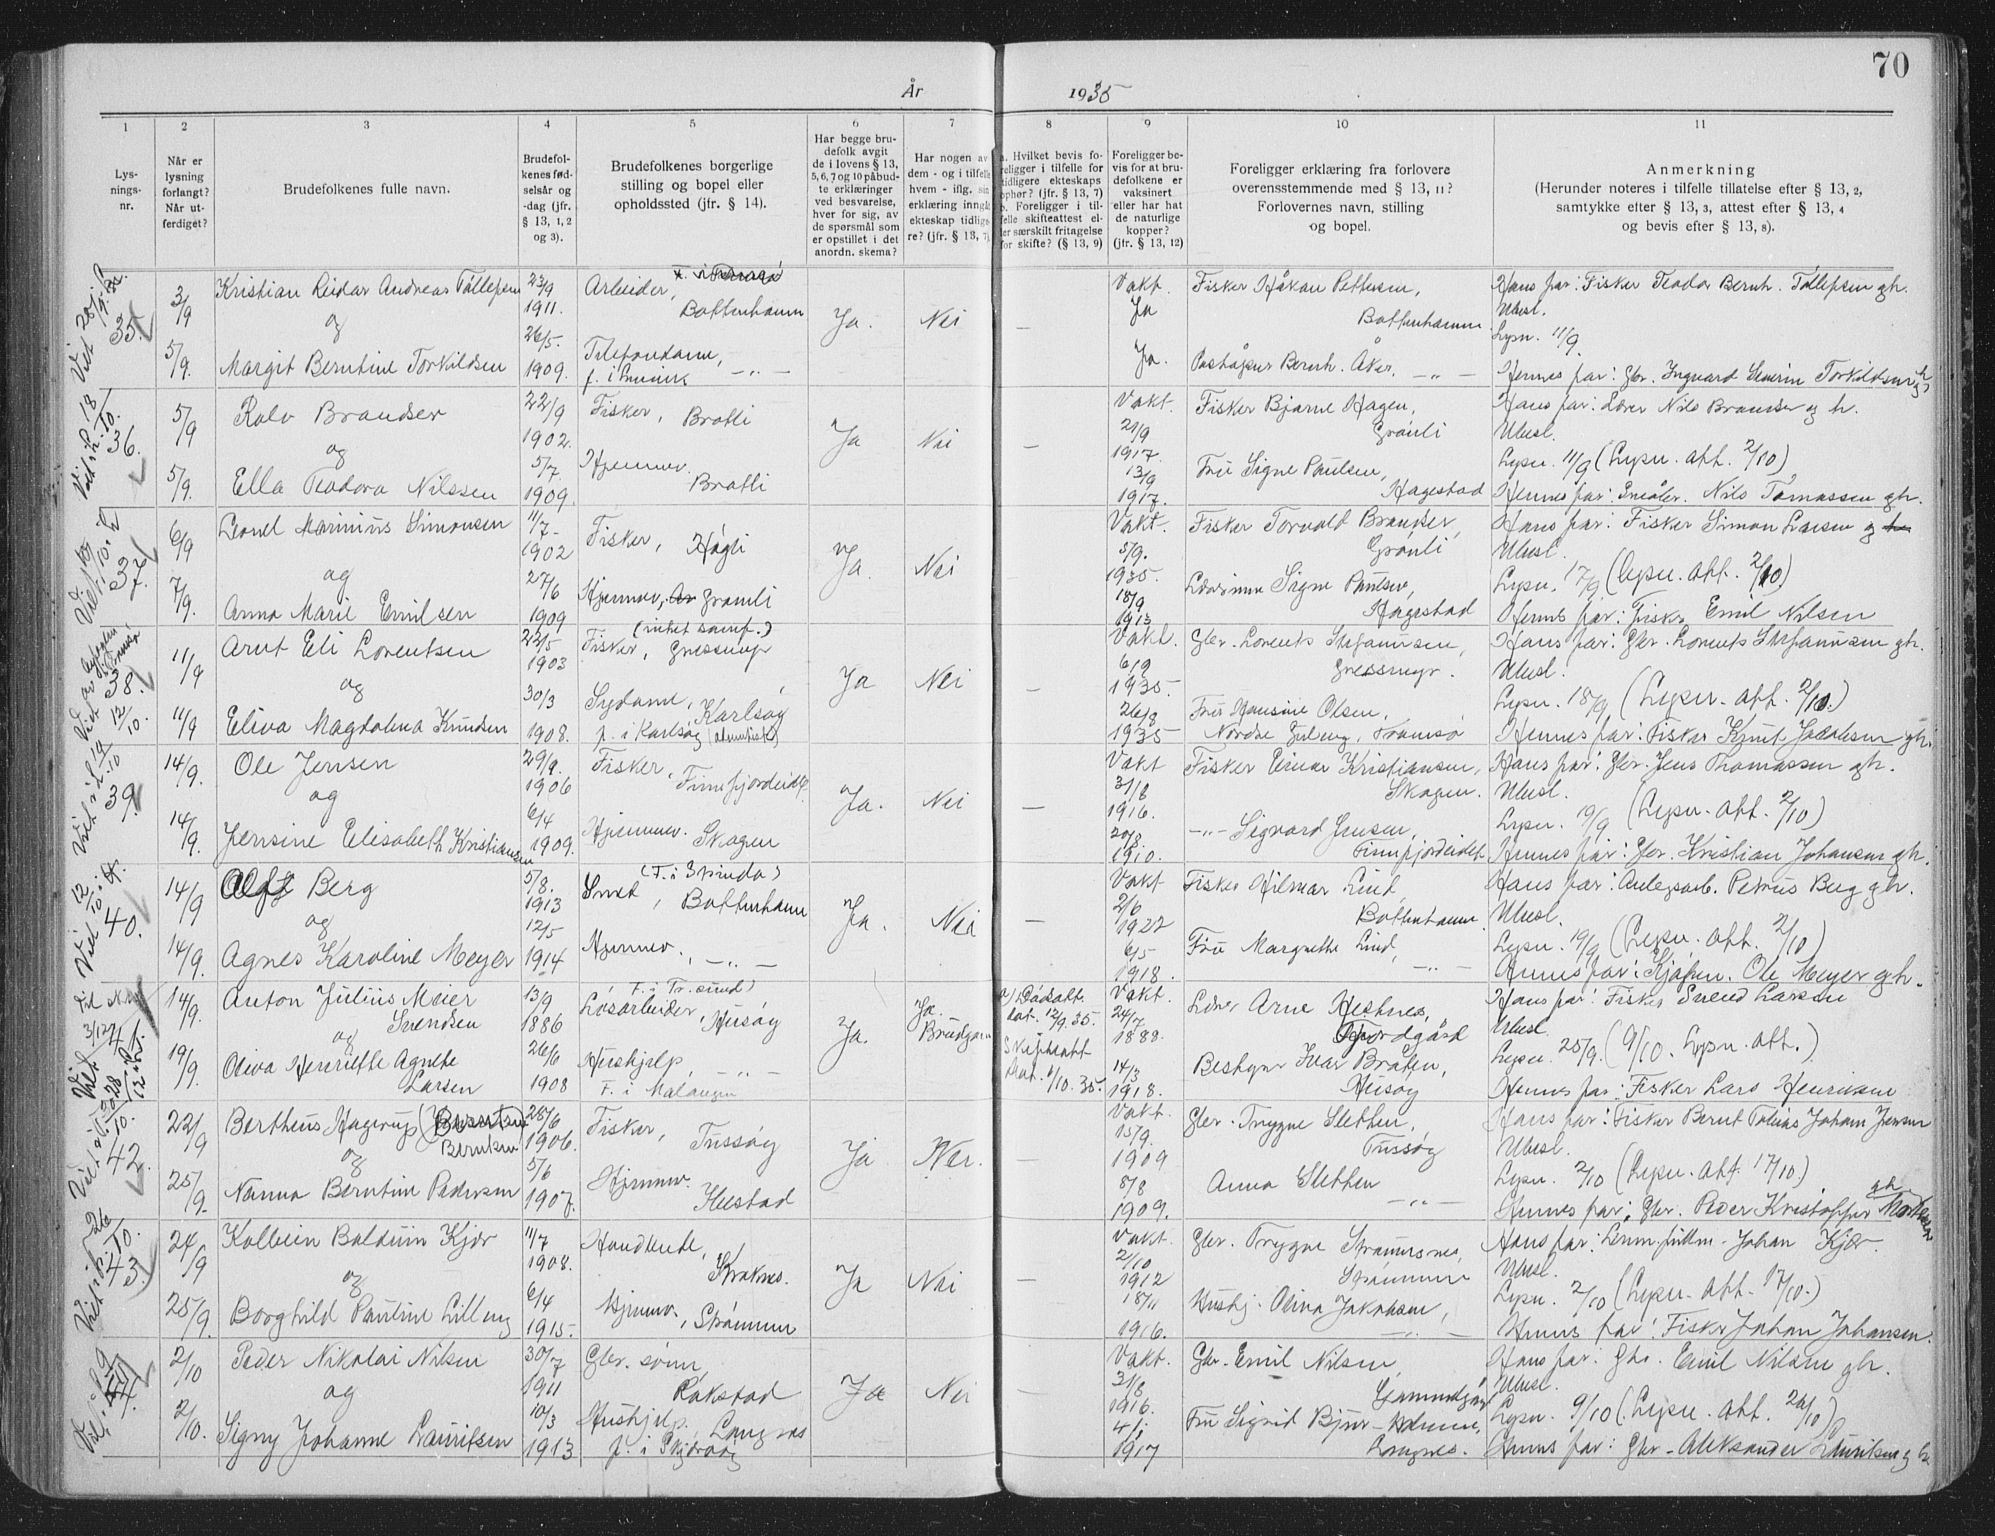 70
År 1935
1 2 3 4 5 6 7 8 9 10 11
Lys-
nings-
nr.
Når er
lysning
forlangt?
Når ut-
ferdiget?
Brudefolkenes fulle navn.
Brudefol-
kenes fød-
selsår og
-dag (jfr.
§ 13, 1, 2
og 3).
Brudefolkenes borgerlige
stilling og bopel eller
opholdssted (jfr. § 14).
Har begge bru-
defolk avgit
de i lovens § 13,
5, 6, 7 og 10 påbud-
te erklæringer
ved besvarelse,
hver for sig, av
de spørsmål som
er opstillet i det
anordn. skema?
Har nogen av
dem - og i tilfelle
hvem - iflg. sin
erklæring inngåt
ekteskap tidlige-
re? (jfr. § 13, 7)
a. Hvilket bevis fo-
religger i tilfelle for
tidligere ekteskaps
ophør? (jfr. § 13, 7)
b. Foreligger i til-
felle skifteattest el-
ler særskilt fritagelse
for skifte? (§ 13, 9)
Foreligger be-
vis for at bru-
defolkene er
vaksinert
eller har hat
de naturlige
kopper?
(jfr. § 13, 12)
Foreligger erklæring fra forlovere
overensstemmende med § 13, 11?
Forlovernes navn, stilling
og bopel.
Anmerkning
(Herunder noteres i tilfelle tillatelse efter § 13, 2,
samtykke efter § 13, 3, attest efter § 13, 4
og bevis efter § 13, 8).
35
3/9
5/9.
Kristian Reidar Andreas Tollefsen
og
Margit Berntine Torkildsen
23/9
1911.
26/5-
1909.
Arbeider,
Bottenhavn
Telefondame, -"-
Ja. Nei —
Vakt.
Ja
Ja.
Fisker Håkon Pettersen,
Bottenhavn
Bernh. Åker, -"-
Hans far: Fisker Teodor Bernh. Tollefsen gh.
Ubesl.
Lysn. 11/9.
Hennes far: Gbr. Ingvard Severin Torkildsen
36.
5/9
5/9.
Rolv Brandser
og
Ella Teodora Nilssen
22/9
1902.
5/7
1909.
Fisker, Brotli
Hjemmev.
Brotli
Ja Nei —
Vakt.
21/9
1917.
13/9
1917.
Fisker Bjarne Hagen,
Grönli
Fru Signe Paulsen,
Hagestad
Hans far: Lærer Nils Brandser og h.
Ubesl.
Lysn. 11/9 (Lysn. att. 2/10)
Hennes far: Nils Tomassen gh.
37.
6/9
7/9.
Leonl Marinius Simonsen
og
Anna Marie Emilsen
11/7-
1902
27/6
1909
Fisker, Högli
Hjemmev, Grönli
Ja. Nei
Vakt.
5/9.
1935.
18/9
1913
Fisker Torvald Brandser,
Grönli
Lærerinne Signe Paulsen,
Hagestad
Hans far: Fisker Simon Larsen
Ubesl.
Lysn. 17/9 (Lysn. att. 2/10)
Hennes far: Fisker Emil Nilsen
38.
11/9
11/9
Arnt Eli Lorentsen
og
Eliva Magdalena Knudsen
22/5
1903
30/3
1908.
Fisker,
Sydame, Karlsøy
f. i Karlsøy
Ja Nei —
Vakt.
6/9
1935.
26/8
1935
Gbr. Lorents Stefanussen,
Fru Hansine Olsen,
Tromsø
Hans far: Gbr. Lorents Stefanussen gh.
Ubesl.
Lysn. 18/9 (Lysn. att. 2/10.)
Hennes far: Fisker Knut Jakobsen gh.
39.
14/9.
14/9.
Ole Jensen
og
Jensine Elisabeth Kristiansen
29/9.
1906
6/4
1909.
Fisker,
Finnfjordeidet
Hjemmev. Skogen
Ja. Nei —
Vakt
31/8
1916.
1910.
Fisker Einar Kristiansen,
Skogen.
-"- Sigvard Jensen,
Finnfjordeidet
Hans far: Gbr. Jens Thomassen gh.
Ubesl.
Lysn. 19/9 (Lysn. att. 2/10)
Hennes far: Gbr. Kristian Johansen gh.
40.
14/9
14/9.
Alf Berg
og
Agnes Karoline Meyer
5/8.
1913
12/5
1914
Smed, Bottenhavn
Hjemmev., -"-
Ja. Nei —
Vakt
2/6
1922
6/5
1918.
Fisker Hilmar Lind,
Bottenhavn
Fru Margrethe Lind,
-"-
Hans far: Anlegsarb. Petrus Berg gh.
Ubesl.
Lysn. 19/9 (Lysn. att. 2/10)
Hennes far: Kjøpm. Ole Meyer gh.
41
14/9.
19/9.
Anton Julius Meier
Svendsen
og
Oliva Henriette Agnete
Larsen
13/9
1886
26/6
1908
Løsarbeider, Husøy
Hushjelp, -"-
F. i Malangen
Ja. Ja.
Brudgom
a) Dødsatt.
dat. 12/9.35.
Skifteatt
dat. 1/10.35.
Vakt.
24/7
1888.
14/3
1918.
Lærer Arne Hestnes,
Fjordgård
Bestyrer Ivar Bråten,
Husøy
Hans far: Fisker Svend Larsen
Ubesl.
Lysn. 25/9. (9/10. Lysn. att.)
Hennes far: Fisker Lars Henriksen
42.
22/9
25/9.
Bertheus Hagerup
Berntsen
og
Nanna Berntine Pedersen
28/6
1906.
5/6
1907.
Fisker,
Tussøy
Hjemmev.
Ja Nei. —
Vakt.
15/9.
1909
8/8
1909.
Gbr. Trygve Slethen,
Tussøy
Anna Slethen
-"-
Hans far: Fisker Bernt Tobias Johan Jensen
Ubesl.
Lysn. 2/10 (Lysn. att. 17/10)
Hennes far: Gbr. Peder Kristoffer
43.
24/9
25/9.
Kolbein Balduin Kjær
og
Borghild Pauline Lilleng
11/7
1908.
6/4
1915.
Straknes.
Hjemmev., Strømmen
Ja Nei —
Vakt.
2/10
1912
18/11
1916.
Gbr. Trygve Straumsnes,
Strømmen
Hushj. Oliva Jakobsen,
-"-
Hans far: Johan Kjær.
Ubesl.
Lysn. 2/10 (Lysn. att. 17/10.)
Hennes far: Fisker Johan Johansen.
44.
2/10
2/10.
Peder Nikolai Nilsen
og
Signy Johanne Lauritsen
30/7
1911
10/3
1913
Gbr. sønn,
Rakstad
Hushjelp, Langnes
f. i Skjervøy
Ja Nei —
Vakt.
31/8
1916.
4/1
1917
Gbr. Emil Nilsen,
Fru Sigrid
Langnes.
Hans far: Gbr. Emil Nilsen gh.
Ubesl.
Lysn. 9/10 (Lysn. att. 26/10)
Hennes far: Gbr. Aleksander Lauritsen